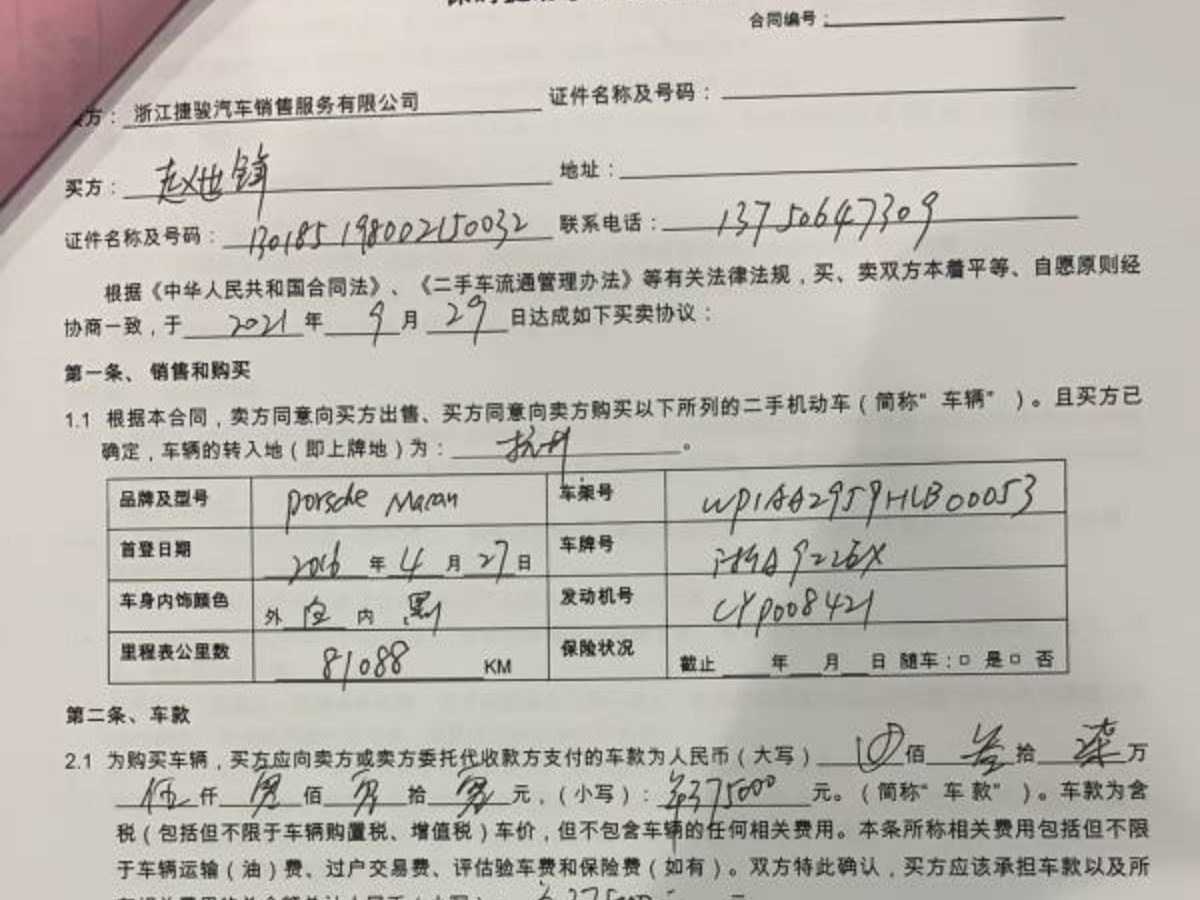 合同编号：
方： 浙江捷骏汽车销售服务有限公司 证件名称及号码：
买方： 赵世锋 地址：
证件名称及号码： 130185198002150032 联系电话： 13750647309
根据《中华人民共和国合同法》、《二手车流通管理办法》等有关法律法规，买、卖双方本着平等、自愿原则经
协商一致，于 2021 年 9 月 29 日达成如下买卖协议：
第一条、 销售和购买
1.1 根据本合同，卖方同意向买方出售、买方同意向卖方购买以下所列的二手机动车（简称“ 车辆” ）。且买方已
确定，车辆的转入地（即上牌地）为： 杭州 。
品牌及型号 Porsche Macan 车架号 WP1AA2959HLB00053
首登日期 2016 年 4 月 27 日 车牌号
车身内饰颜色 外 白 内 黑 发动机号 CYP008421
里程表公里数 81088 KM 保险状况 截止 年 月 日 随车：□ 是□ 否
第二条、车款
2.1 为购买车辆，买方应向卖方或卖方委托代收款方支付的车款为人民币（大写） 佰 叁 拾 柒 万
伍 仟 零 佰 零 拾 零 元，（小写）： ¥375000 元。（简称“ 车款” ）。车款为含
税（包括但不限于车辆购置税、增值税）车价，但不包含车辆的任何相关费用。本条所称相关费用包括但不限
于车辆运输（油）费、过户交易费、评估验车费和保险费（如有）。双方特此确认，买方应该承担车款以及所